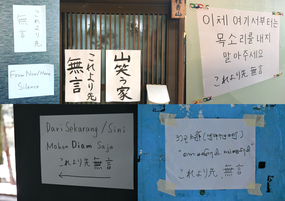 これより先
無言
From Now/Here
Silence
これより先
無言
山笑う家
이제 여기서부터는
목소리를 내지
말아주세요
これより先 無言
Dari Sekarang / Sini
Mohon Diam Saja
これより先 無言
これより先 無言